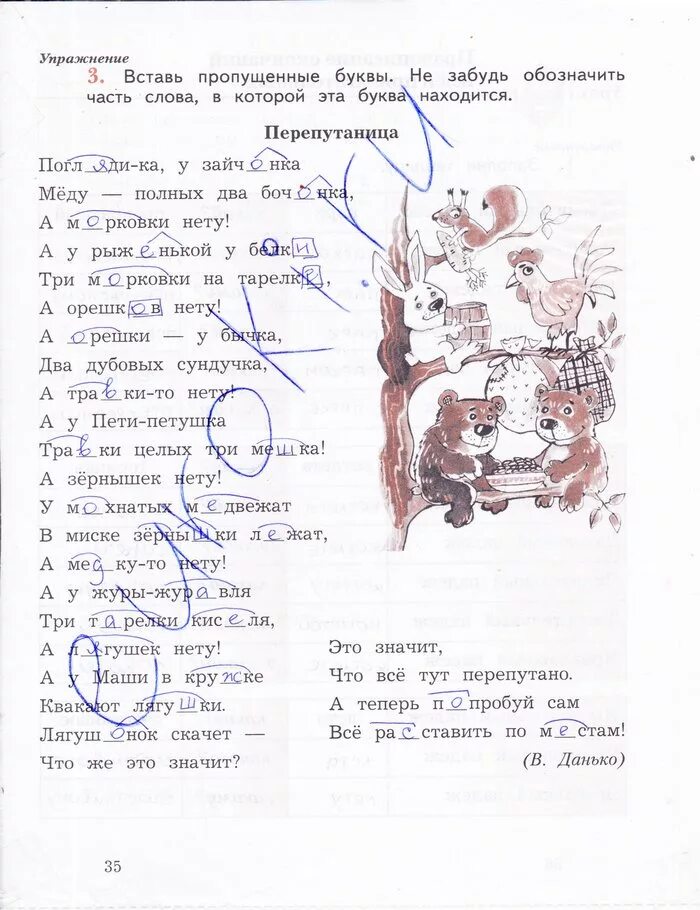 Упражнение
3. Вставь пропущенные буквы. Не забудь обозначить
часть слова, в которой эта буква находится.
Перепутаница
Погляди-ка, у зайчонка
Мёду — полных два бочонка,
А морковки нету!
А у рыженькой у белки
Три морковки на тарелке,
А орешков нету!
А орешки — у бычка,
Два дубовых сундучка,
А травки-то нету!
А у Пети-петушка
Травки целых три мешка!
А зёрнышек нету!
У мохнатых медвежат
В миске зёрнышки лежат,
А медку-то нету!
А у журы-журавля
Три тарелки киселя,
А лягушек нету!
А у Маши в кружке
Квакают лягушки.
Лягушонок скачет —
Что же это значит?
Это значит,
Что всё тут перепутано.
А теперь попробуй сам
Всё расставить по местам!
(В. Данько)
35